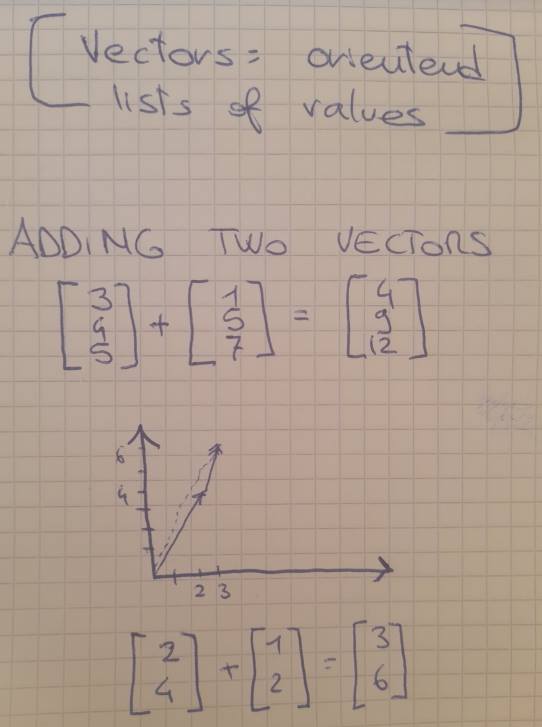 [Vectors= orientend
lists of values]
ADDING TWO VECTORS
[3 4 5] + [1 5 7] = [4 9 12]
6
4
2 3
[2 4] + [1 2] = [3 6]